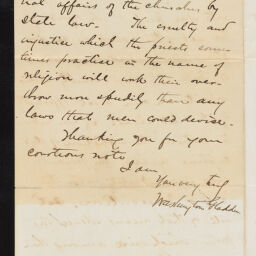 nal affairs of the churches by
state law. The cruelty and
injustice which the priests some-
times practice in the name of
religion will work their over-
throw more speedily than any
laws that men could devise.
Thanking you for your
courteous note
I am
Yours very truly
Washington Gladden